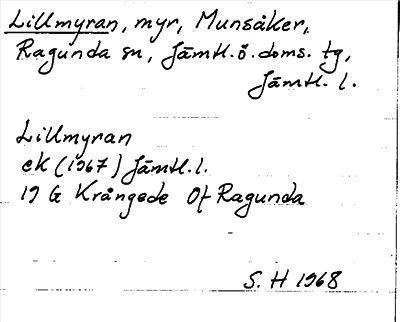 Lillmyran, myr, Munsåker,
Ragunda sn, Jämtl. ö. doms. tg,
Jämtl. l.
Lillmyran
ek (1967) Jämtl. l.
19 G Krångede Of Ragunda
S. H 1968